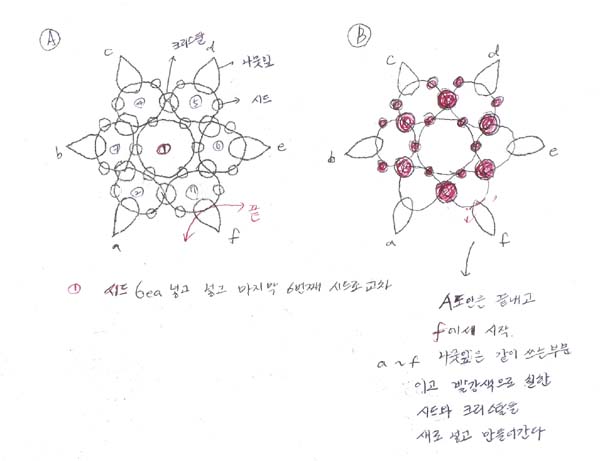 A
B
크리스탈
c
d
나뭇잎
시드
b
e
a
f
끝
c
d
b
e
a
f
① 시드 6ea 넣고 설고 마지막 6번째 시드로 교차
A도안은 끝내고
f에서 시작.
a~f 나뭇잎은 같이 쓰는부분
이고 빨강색으로 칠한
시드와 크리스탈을
새로 넣고 만들어간다